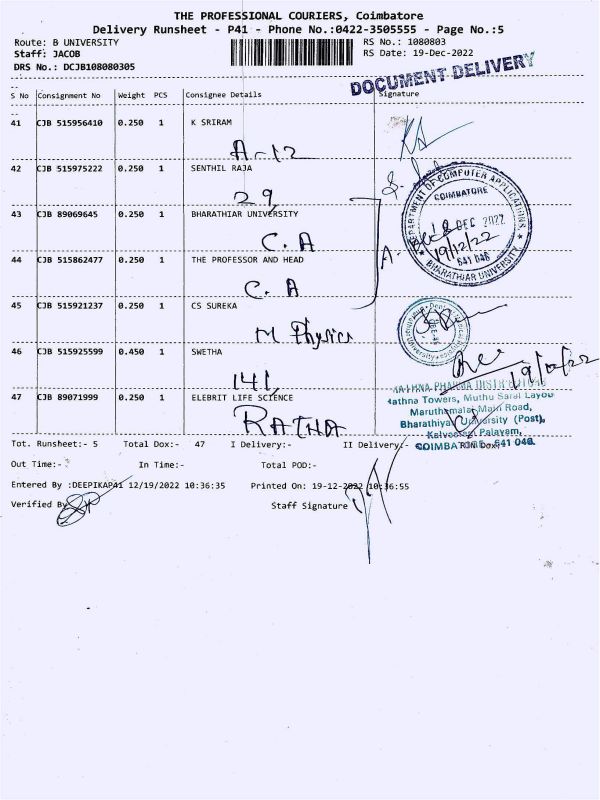 THE PROFESSIONAL COURIERS, Coimbatore
Delivery Runsheet - P41 - Phone No.:0422-3505555 - Page No.:5
Route: B UNIVERSITY RS No.: 1080803
Staff: JACOB RS Date: 19-Dec-2022
DRS No.: DCJB108080305
DOCUMENT DELIVERY
S No Consignment No Weight PCS Consignee Details Signature
41 CJB 515956410 0.250 1 K SRIRAM
A-12
42 CJB 515975222 0.250 1 SENTHIL RAJA
29,
43 CJB 89069645 0.250 1 BHARATHIAR UNIVERSITY
C. A
44 CJB 515862477 0.250 1 THE PROFESSOR AND HEAD
C. A
DEPARTMENT OF COMPUTER APPLICATIONS
COIMBATORE
DEC 2022
19/12/22
641 046
BHARATHIAR UNIVERSITY
45 CJB 515921237 0.250 1 CS SUREKA
M Physics
46 CJB 515925599 0.450 1 SWETHA
141,
19/12/22
47 CJB 89071999 0.250 1 ELEBRIT LIFE SCIENCE
RATHA
RATHNA PHARMA DISTRIBUTORS
Rathna Towers, Muthu Sarai Layou
Maruthamalai Main Road,
Bharathiyar University (Post),
Palayam,
COIMBATORE-641 046.
Tot. Runsheet:- 5 Total Dox:- 47 I Delivery:- II Delivery:-
Out Time:- In Time:- Total POD:-
Entered By :DEEPIKAP41 12/19/2022 10:36:35 Printed On: 19-12-2022 10:36:55
Verified By Staff Signature